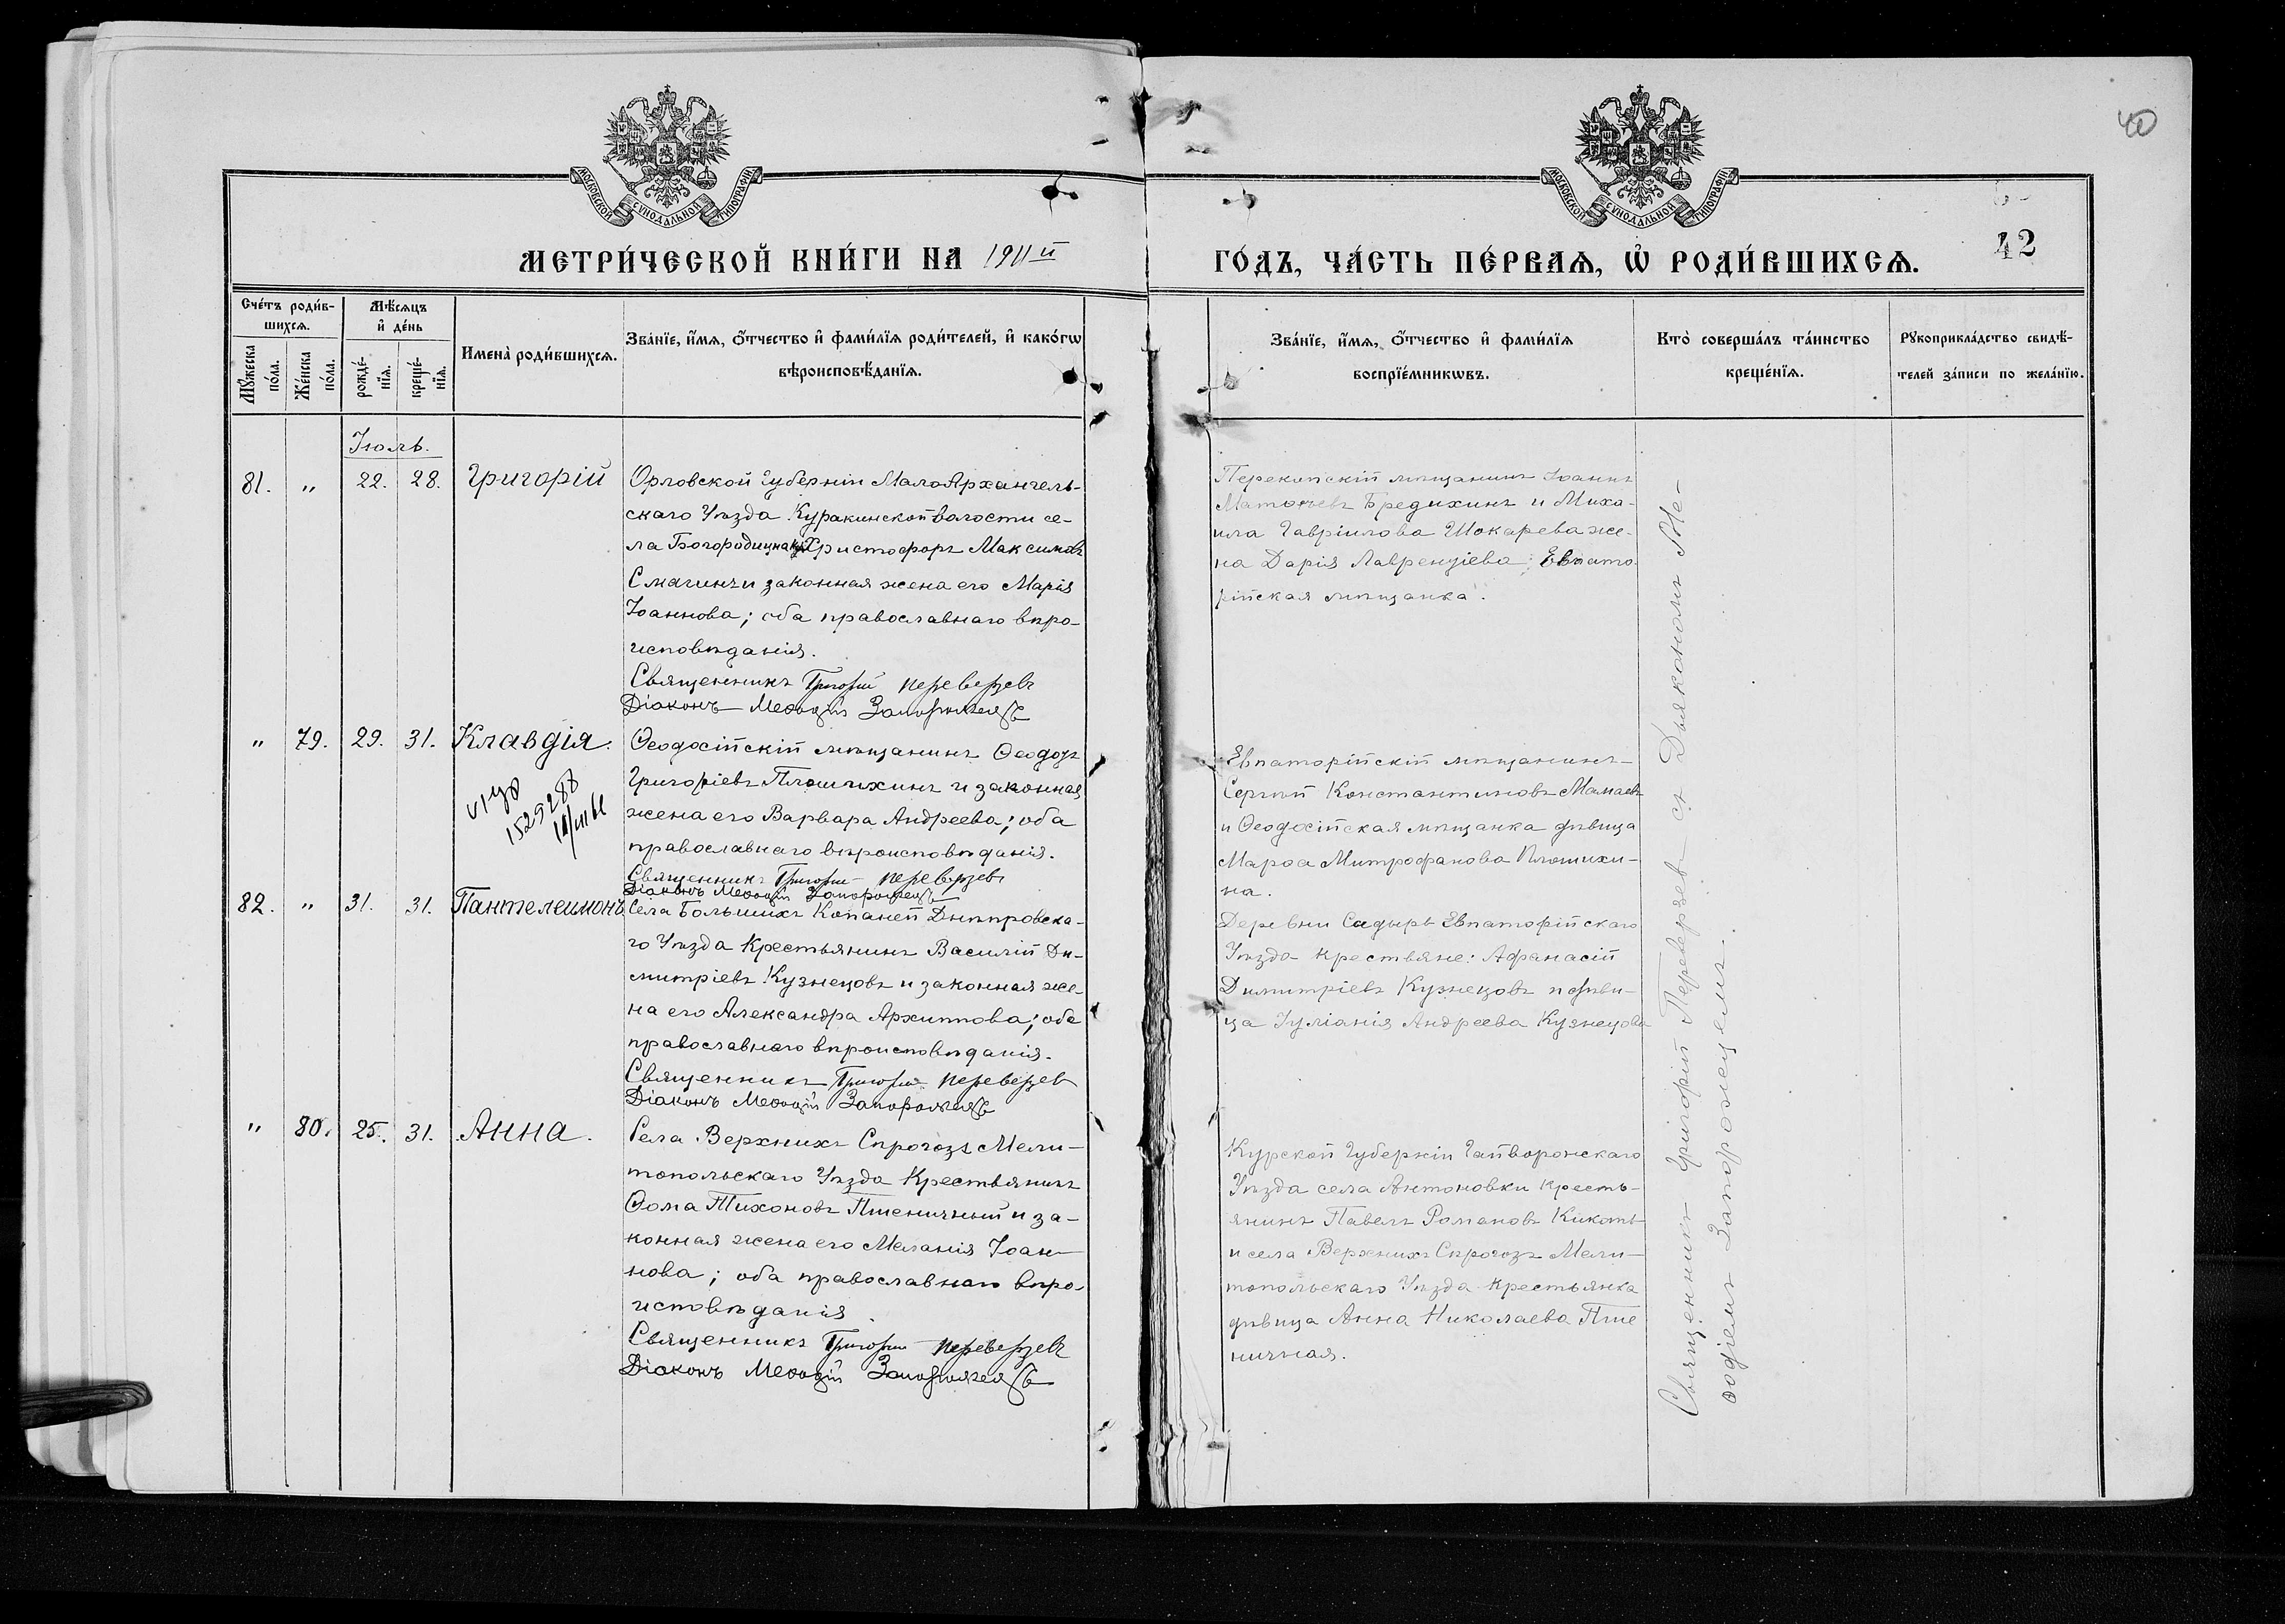 40
МОСКОВСКОЙ СУНОДАЛЬНОЙ ТИПОГРАФІИ
МОСКОВСКОЙ СУНОДАЛЬНОЙ ТИПОГРАФІИ
МЕТРИ́ЧЕСКОЙ КНИ́ГИ НА 1911й
ГО́ДЪ, ЧА́СТЬ ПЕ́РВАѦ, Ѡ҆ РОДИ́ВШИХСѦ.
42
Сче́тъ роди́в-
шихсѧ.
Мꙋ́жеска по́ла.
Же́нска по́ла.
Мѣ́сѧцъ
и҆ де́нь
рожде́-
нїѧ.
креще́-
нїѧ.
Имена̀ роди́вшихсѧ.
Зва́нїе, и҆́мѧ, ѻ҆́тчество и҆ фами́лїѧ роди́телей, и҆ како́гѡ
вѣроисповѣ́данїѧ.
Зва́нїе, и҆́мѧ, ѻ҆́тчество и҆ фами́лїѧ
воспрїе́мникѡвъ.
Кто̀ соверша́лъ та́инство
креще́нїѧ.
Рꙋкоприкла́дство свидѣ́-
телей за́писи по жела́нїю.
Іюль.
81. " 22. 28. Григорій
Орловской Губерніи МалоАрхангель-
скаго Уѣзда Куракинской волости се-
ла Богородицкаго Христофоръ Максимовъ
Смагинъ и законная жена его Марія
Іоаннова; оба православнаго вѣро-
исповѣданія.
Священникъ Григорій Переверзевъ
Діаконъ Меѳодій Запорожецъ
Перекопскій мѣщанинъ Іоаннъ
Матѳеевъ Бредихинъ и Миха-
ила Гавріилова Шокарева же-
на Дарія Лаврентіева; Евпато-
рійская мѣщанка.
" 79. 29. 31. Клавдія.
1529288
Ѳеодосійскій мѣщанинъ Ѳеодоръ
Григоріевъ Плошихинъ и законная
жена его Варвара Андреева; оба
православнаго вѣроисповѣданія.
Священникъ Григорій Переверзевъ
Діаконъ Меѳодій Запорожецъ
Евпаторійскій мѣщанинъ
Сергѣй Константиновъ Мамаевъ
и Ѳеодосійская мѣщанка дѣвица
Марѳа Митрофанова Плошихи-
на.
82. " 31. 31. Пантелеимонъ
Села Большихъ Копаней Днѣпровска-
го Уѣзда Крестьянинъ Василій Ди-
митріевъ Кузнецовъ и законная же-
на его Александра Архиппова; оба
православнаго вѣроисповѣданія.
Священникъ Григорій Переверзевъ
Діаконъ Меѳодій Запорожецъ
Деревни Садыръ Евпаторійскаго
Уѣзда крестьяне: Афанасій
Димитріевъ Кузнецовъ и дѣви-
ца Іуліанія Андреева Кузнецова
" 80. 25. 31. Анна.
Села Верхнихъ Сѣрогозъ Мели-
топольскаго Уѣзда Крестьянинъ
Ѳома Тихоновъ Пшеничный и за-
конная жена его Меланія Іоан-
нова; оба православнаго вѣро-
исповѣданія.
Священникъ Григорій Переверзевъ
Діаконъ Меѳодій Запорожецъ
Курской Губерніи Гайворонскаго
Уѣзда села Антоновки кресть-
янинъ Павелъ Романовъ Кикоть
и села Верхнихъ Сѣрогозъ Мели-
топольскаго Уѣзда крестьянка
дѣвица Анна Николаева Пше
ничная.
Священникъ Григорій Переверзевъ съ Дьякономъ Ме-
ѳодіемъ Запорожецемъ.